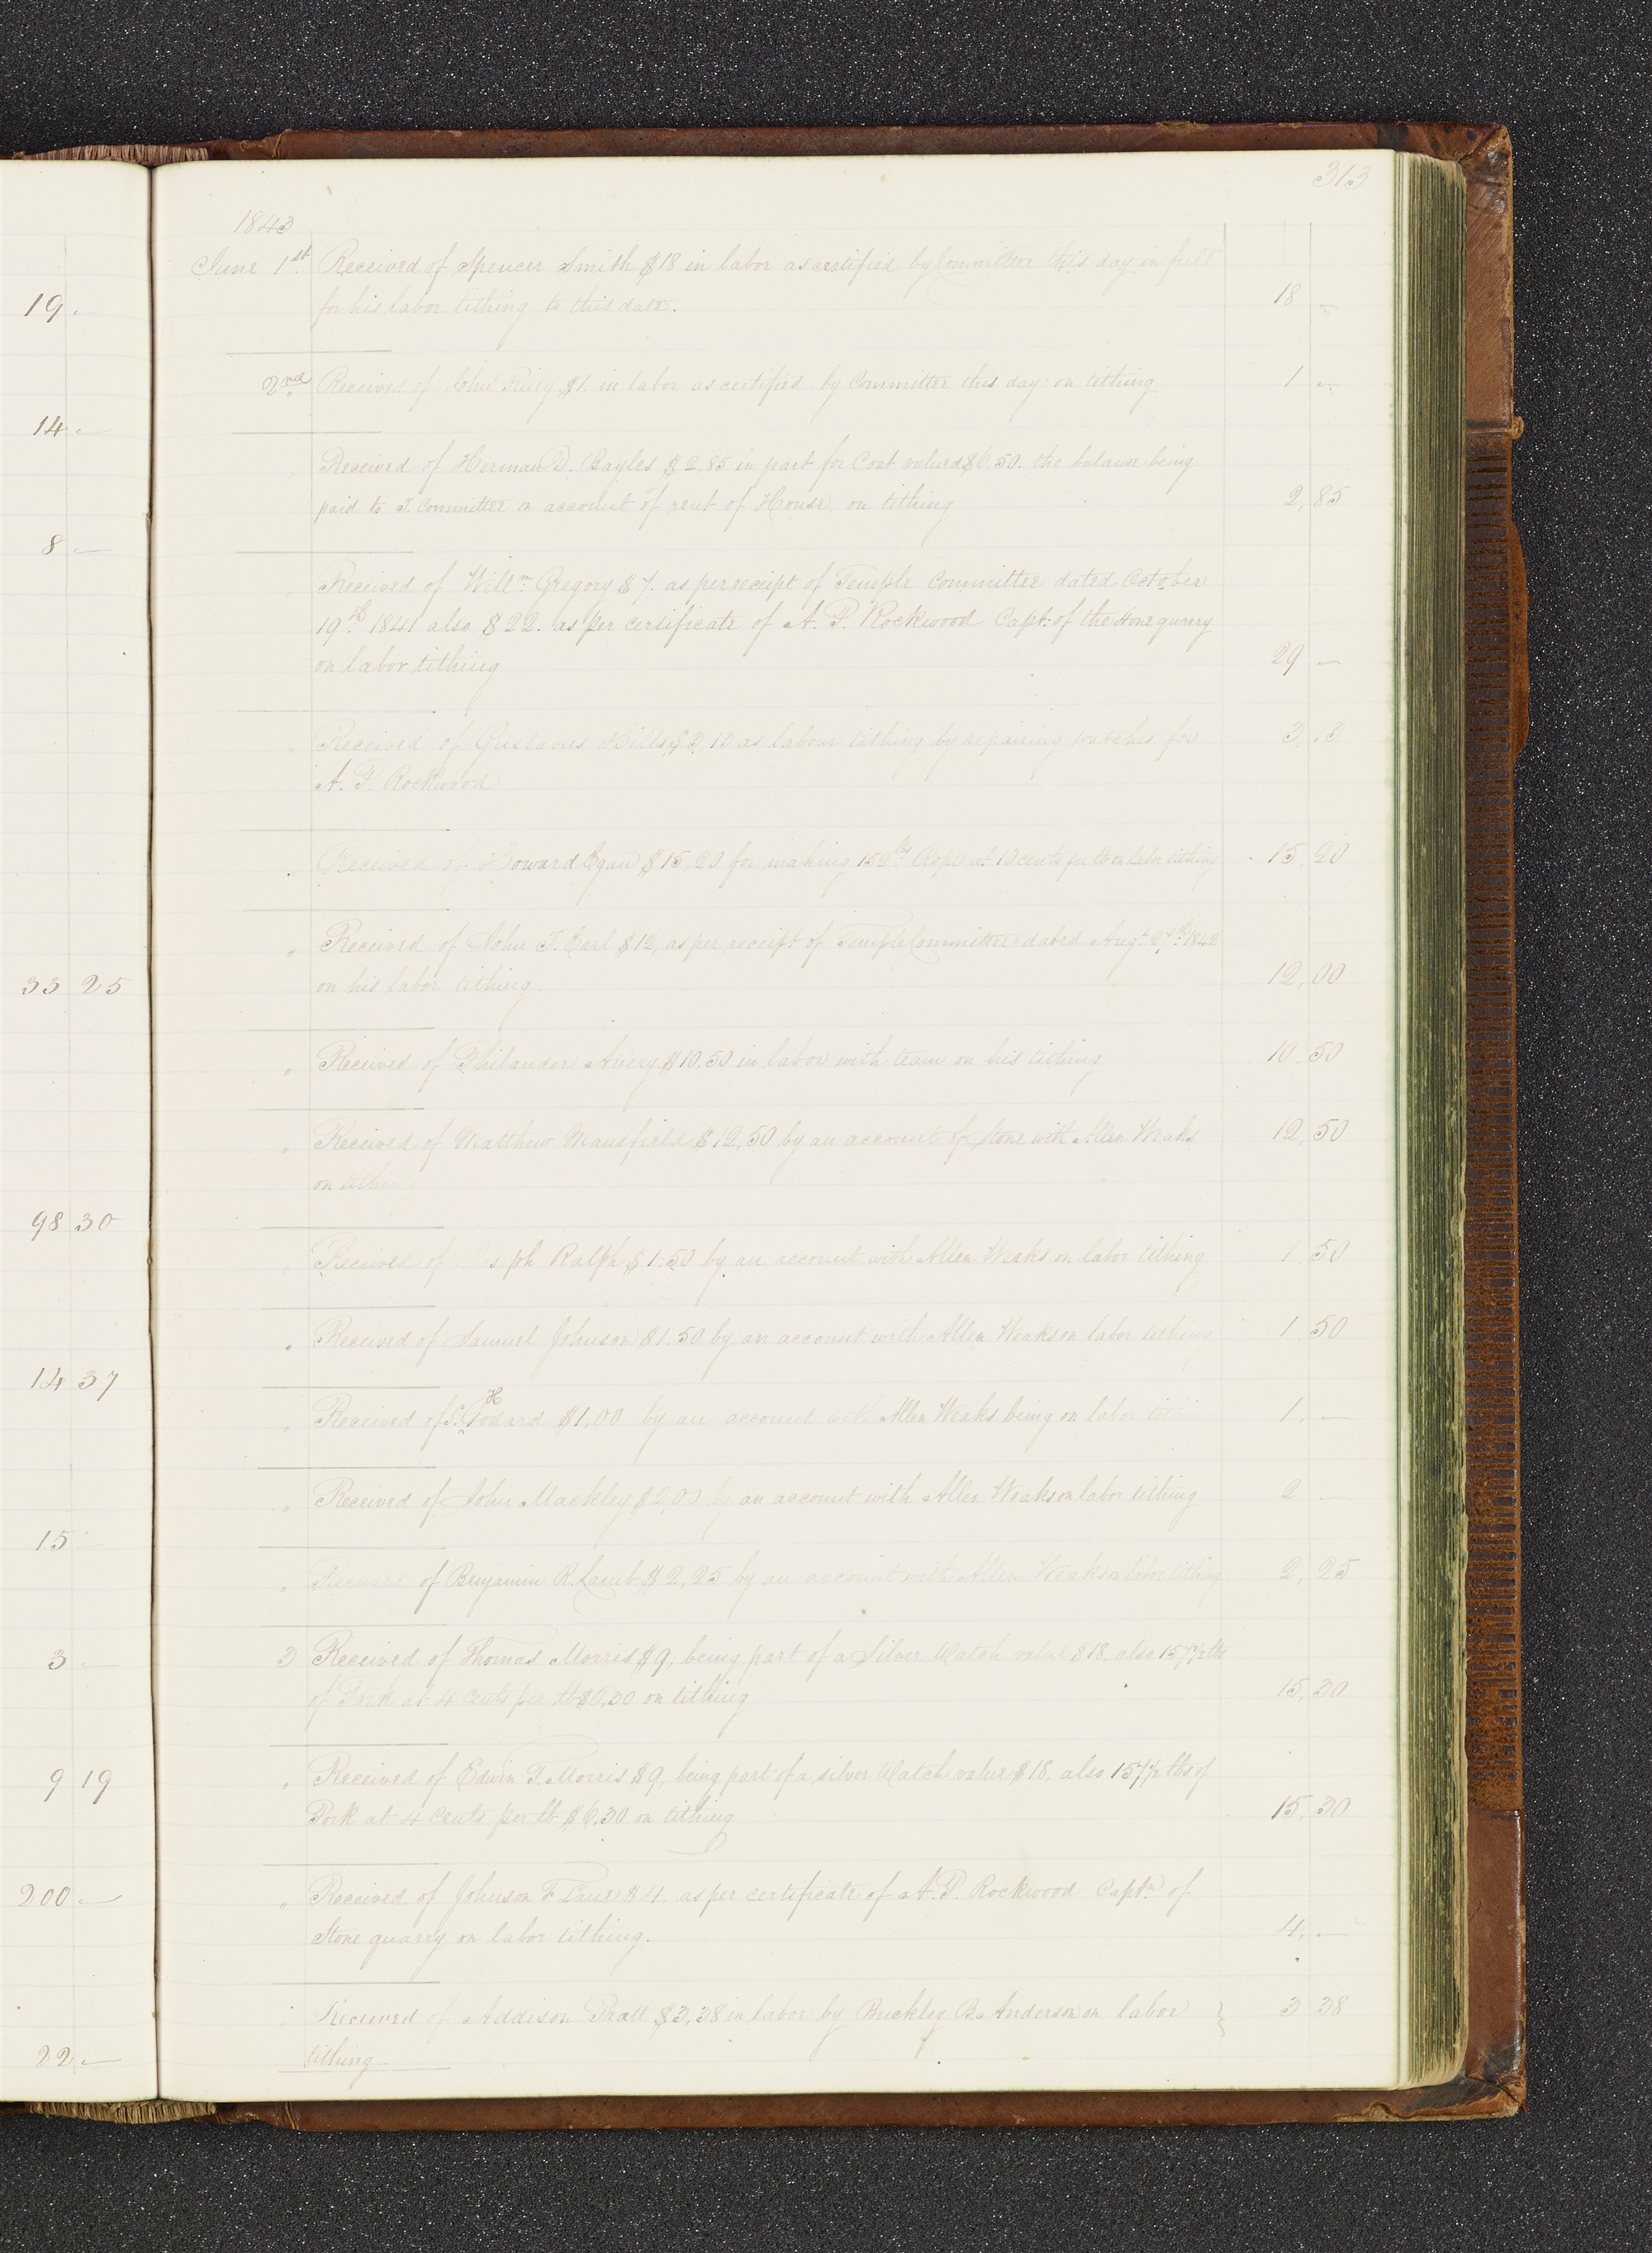 313
1843
June 1st. Received of Spencer Smith $18 in labor as certified by Committee this day in full
for his labor tithing to this date. 18 -
2nd Received of John Fiely $1. in labor as certified by Committee this day on tithing 1 -
" Received of Herman D. Bayles $2,85 in part for Coat valued $6,50. the balance being
paid to T. Committee on account of rent of House, on tithing 2,85
" Received of Willm. Gregory $7. as per receipt of Temple Committee dated October
19th. 1841 also $22. as per certificate of A. P. Rockwood Capt: of the stone quarry
on labor tithing 29 -
" Received of Gustavus Hills $3,13 as labour tithing by repairing watches for 3,
A. P. Rockwood
" Received of Howard Egan $15,20 for making 152 lbs Rope at 10 cents per lb on labor tithing 15,20
" Received of John T. Earl $12, as per receipt of Temple Committee dated Augt. 27th. 1842
on his labor tithing. 12,00
" Received of Philander Avery $10,50 in labor with team on his tithing 10.50
" Received of Matthew Mansfield $12,50 by an account of stone with Allen Weaks 12,50
on tithing
" Received of Joseph Ralph $1.50 by an account with Allen Weaks on labor tithing 1,50
" Received of Samuel Johnson $1.50 by an account with Allen Weaks on labor tithing 1,50
" Received of S. H Godard $1,00 by an account with Allen Weaks being on labor tithing 1. -
" Received of John Mackley $2,00 by an account with Allen Weaks on labor tithing 2 -
" Received of Benjamin R. Lamb $2,25 by an account with Allen Weaks on labor tithing 2,25
3 Received of Thomas Morris $9, being part of a Silver Watch value $18, also 157½ lbs
of Pork at 4 cents per lb $6,30 on tithing 15,30
" Received of Edwin T. Morris $9, being part of a silver Watch value $18, also 157½ lbs of
Pork at 4 Cents per lb $6.30 on tithing 15,30
" Received of Johnson F Lane $4. as per certificate of A. P. Rockwood Captn. of
Stone quarry on labor tithing. 4, -
Received of Addison Pratt $3,38 in labor by Buckley B. Anderson on labor } 3 38
tithing
19.
14 -
8 -
33 25
98 30
14 37
15 -
3 -
9 19
200 -
22 -